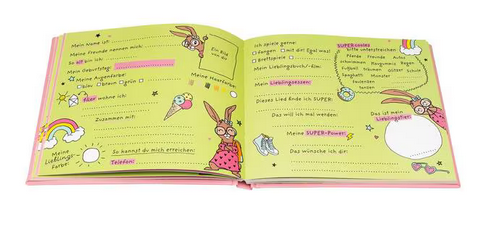 Mein Name ist:
Meine Freunde nennen mich:
So alt bin ich:
Mein Geburtstag:
Meine Augenfarbe:
blau braun grün
Hier wohne ich:
Zusammen mit:
Meine Lieblings-
farbe:
So kannst du mich erreichen:
Telefon:
Ein Bild
von dir
Meine Haarfarbe:
Ich spiele gerne:
fangen mit dir! Egal was!
Brettspiele
Mein Lieblingsbuch/-film:
Mein Lieblingsessen:
Dieses Lied finde ich SUPER:
Das will ich mal werden:
Meine SUPER-Power:
Das wünsche ich dir:
SUPER
bitte unterstreichen:
Pferde Freunde Autos
schwimmen Regenwurm Regen
Fußball träumen Glitzer Schule
Spaghetti Monster
faulenzen
tanzen
Das ist mein
Lieblingstier: